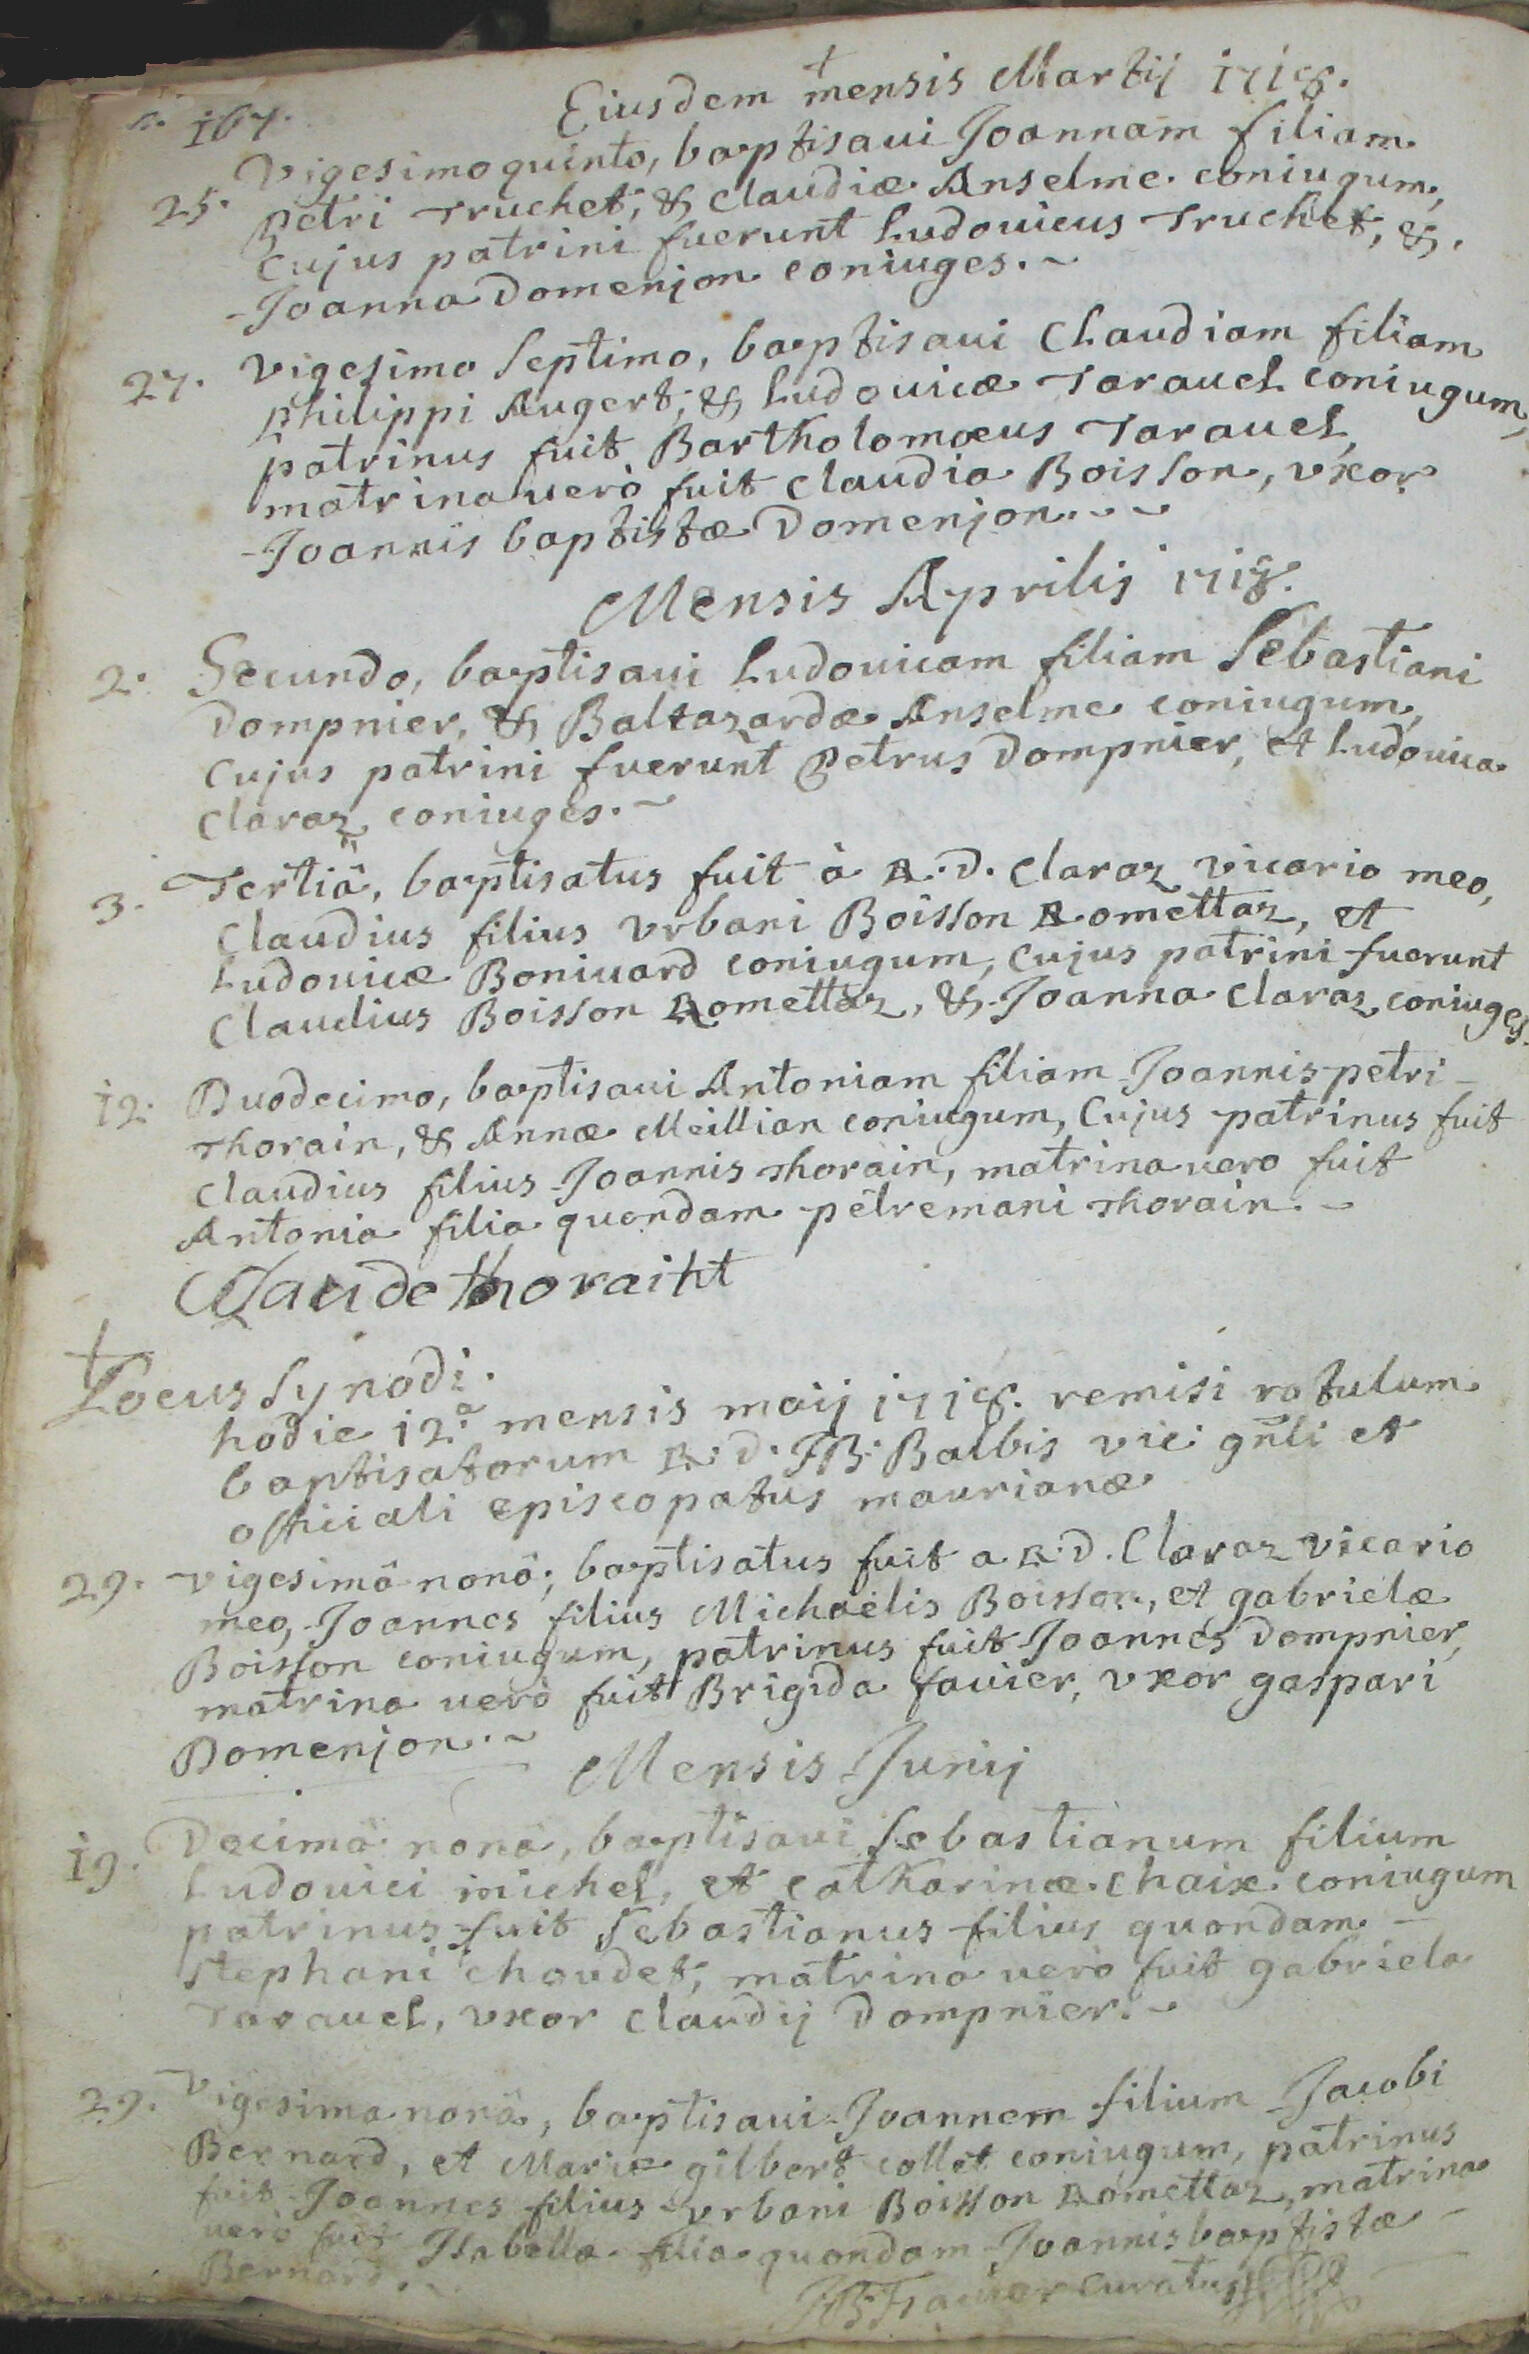 +
n. 167. Eiusdem mensis Martij 1718.
25. Vigesimoquinto, baptisaui Joannam filiam
petri Truchet, & Claudiæ Anselme coniugum,
Cujus patrini fuerunt Ludouicus Truchet, &
Joanna Domenjon coniuges.
27. Vigesimo septimo, baptisaui Claudiam filiam
philippi Augert, & Ludouicæ Tarauel coniugum,
patrinus fuit Bartholomæus Tarauel,
matrina uerò fuit Claudia Boisson, vxor
Joannis baptistæ Domenjon.
Mensis Aprilis 1718.
2. Secundo, baptisaui Ludouicam filiam Sebastiani
Dompnier, & Baltazardæ Anselme coniugum,
Cujus patrini fuerunt petrus Dompnier, et Ludouica
Claraz coniuges.
3. Tertiâ, baptisatus fuit à R. D. Claraz vicario meo,
Claudius filius Vrbani Boisson Romettaz, et
Ludouicæ Boniuard coniugum, Cujus patrini fuerunt
Claudius Boisson Romettaz, & Joanna Claraz coniuges.
12. Duodecimo, baptisaui Antoniam filiam Joannis petri
Thorain, & Annæ Meillian coniugum, Cujus patrinus fuit
Claudius filius Joannis Thorain, matrina uero fuit
Antonia filia quondam petremani Thorain.
Claude thoraint
+
Locus Synodi.
hodie 12ª mensis maij 1718. remisi rotulum
baptisatorum R. D. JB. Balbis vic. gñli et
officiali episcopatus maurianæ
29. Vigesimâ nonâ, baptisatus fuit a R. D. Claraz vicario
meo, Joannes filius Michaëlis Boisson, et gabrielæ
Boisson coniugum, patrinus fuit Joannes Dompnier,
matrina uerò fuit Brigida fauier, vxor gaspari
Domenjon.
Mensis Junij
19. Decimâ nonâ, baptisaui Sebastianum filium
Ludouici michel, et Catharinæ Chaix coniugum
patrinus fuit Sebastianus filius quondam
stephani choudet, matrina uerò fuit gabriela
Tarauel, vxor Claudij Dompnier.
29. Vigesima nonâ, baptisaui Joannem filium Jacobi
Bernard, et Mariæ gilbert collet coniugum, patrinus
fuit Joannes filius Vrbani Boisson Romettaz, matrina
uerò fuit Isabella filia quondam Joannis baptistæ
Bernard.
JB. curatus